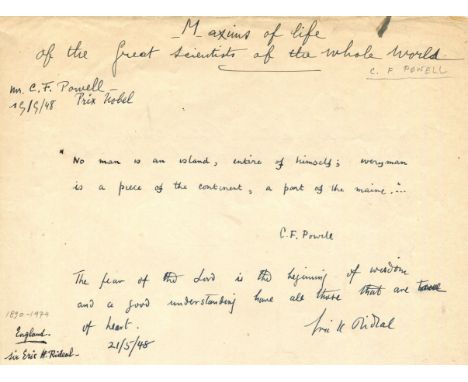 Maxims of life
of the Great Scientists of the whole World
C. F POWELL
Mr. C. F. Powell
19/9/48 Prix Nobel
"No man is an island, entire of himself; everyman
is a piece of the continent, a part of the maine."...
C.F. Powell
The fear of the Lord is the beginning of wisdom
and a good understanding have all those that are
of heart.
Eric K Rideal
21/5/48
1890-1974
England
Sir Eric K. Rideal